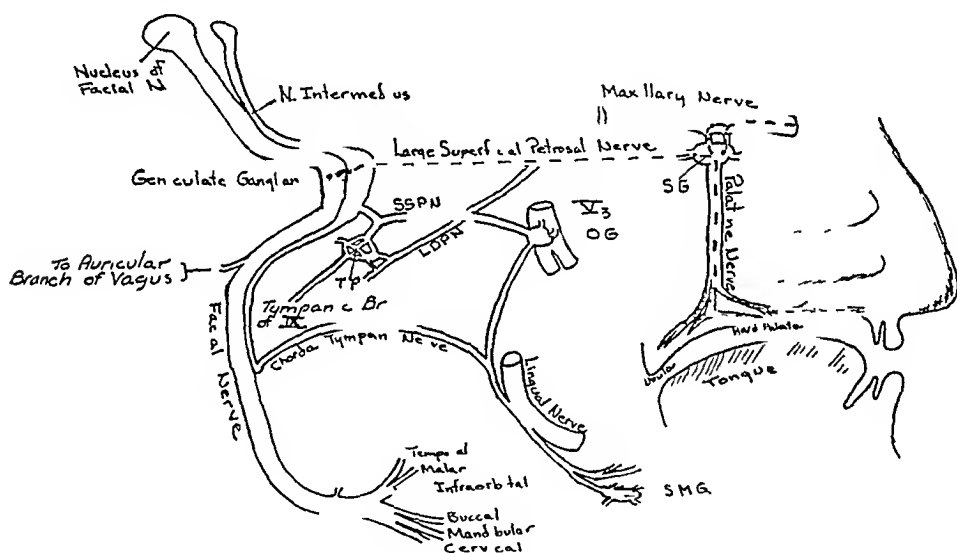 Nucleus of
Facial N
N. Intermed us
Maxllary Nerve
Large Superf cal Petrosal Nerve
Gen culate Ganglan
SG
Palat ne Nerve
SSPN
V3
OG
LDPN
TP
To Auricular
Branch of Vagus
Tympan c Br
of IX
Facal Nerve
Chorda Tympan Nerve
Hard Palate
Uvular
Tongue
Lingual Nerve
Tempo al
Malar
Infraorb tal
SMG
Buccal
Mandbular
Cervcal